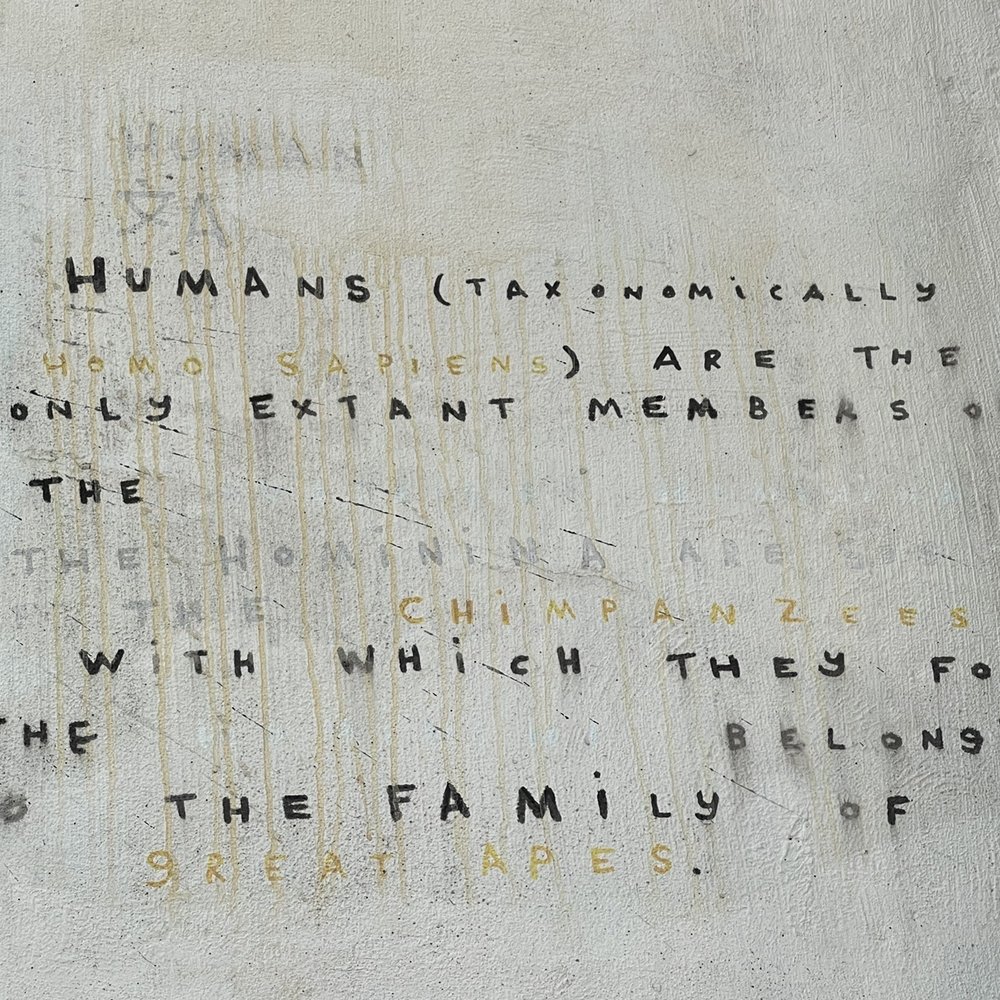 HUMAN
HUMANS (TAXONOMICALLY
HOMO SAPIENS) ARE THE
ONLY EXTANT MEMBERS O
THE
THE HOMININA ARE
THE CHIMPANZEES
WITH WHICH THEY FO
THE BELONG
O THE FAMILY OF
GREAT APES.